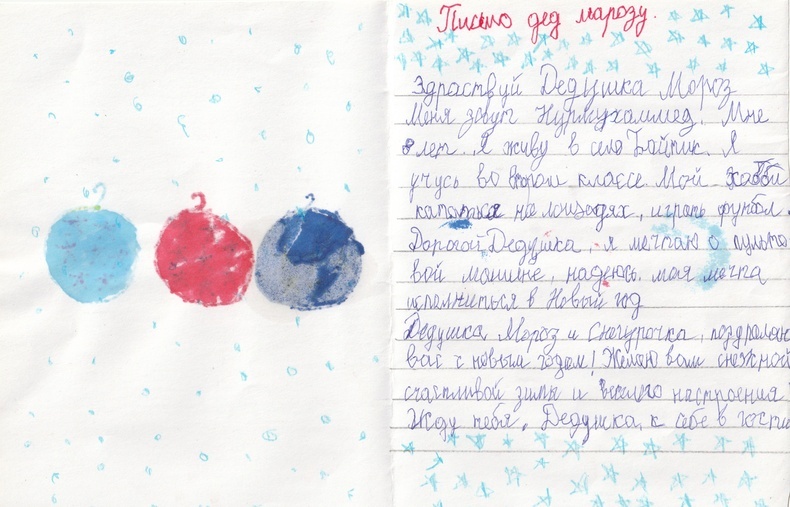 Письмо дед марозу.
Здраствуй Дедушка Мороз
Меня зовут Нурмухаммед. Мне
8 лет. Я живу в село Байтик. Я
учусь во втором классе Мой хобби
кататся на лошадях, играть футбол.
Дорогой Дедушка, я мечтаю о пульто
вой машине, надеюсь моя мечта
исполниться в Новый год
Дедушка Мороз и Снегурочка, поздровляю
вас с новым годом! Желаю вам снежной
счастливой зимы и веселого настроения
Жду тебя, Дедушка, к себе в гости